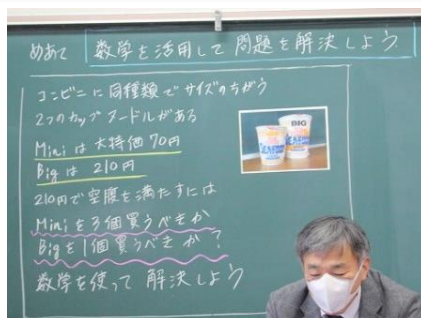 めあて 数学を活用して問題を解決しよう
コンビニに同種類でサイズのちがう
2つのカップヌードルがある
Miniは大特価70円
Bigは210円
210円で空腹を満たすには
Miniを3個買うべきか
Bigを1個買うべきか?
数学を使って解決しよう
BIG